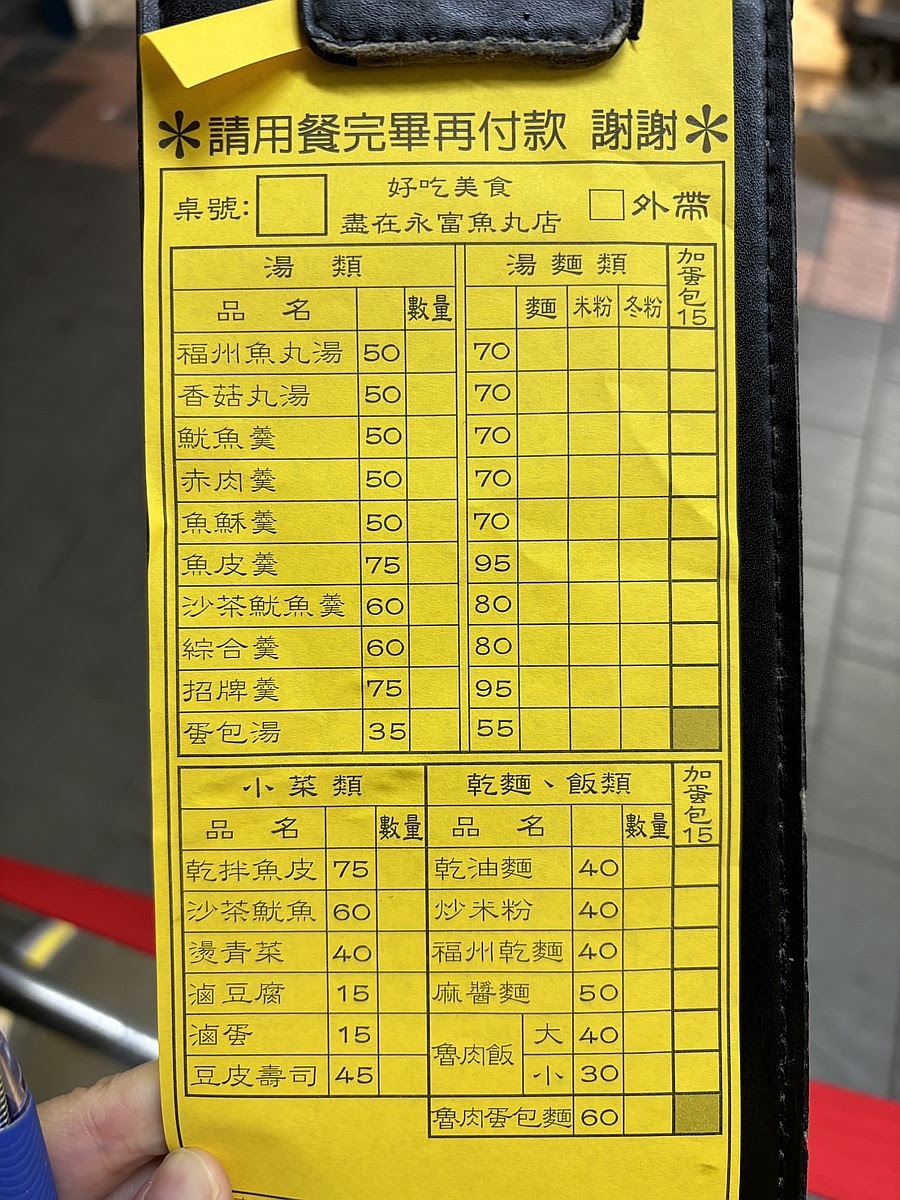 ＊請用餐完畢再付款 謝謝＊
桌號:
好吃美食
盡在永富魚丸店
外帶
湯類 湯麵類 加蛋包15
品名 數量 麵 米粉 冬粉
福州魚丸湯 50 70
香菇丸湯 50 70
魷魚羹 50 70
赤肉羹 50 70
魚穌羹 50 70
魚皮羹 75 95
沙茶魷魚羹 60 80
綜合羹 60 80
招牌羹 75 95
蛋包湯 35 55
小菜類 乾麵、飯類 加蛋包15
品名 數量 品名 數量
乾拌魚皮 75 乾油麵 40
沙茶魷魚 60 炒米粉 40
燙青菜 40 福州乾麵 40
滷豆腐 15 麻醬麵 50
滷蛋 15 魯肉飯 大 40
豆皮壽司 45 小 30
魯肉蛋包麵 60